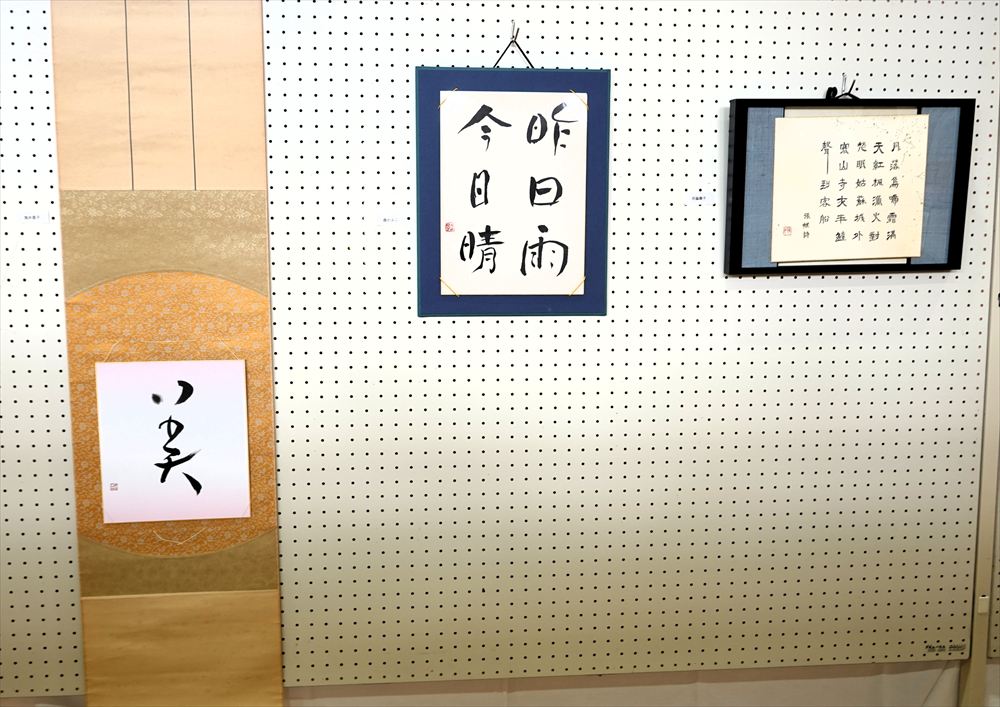 昨日雨
今日晴
月落烏啼霜満
天江楓漁火對
愁眠姑蘇城外
寒山寺夜半鐘
聲到客船
張継詩